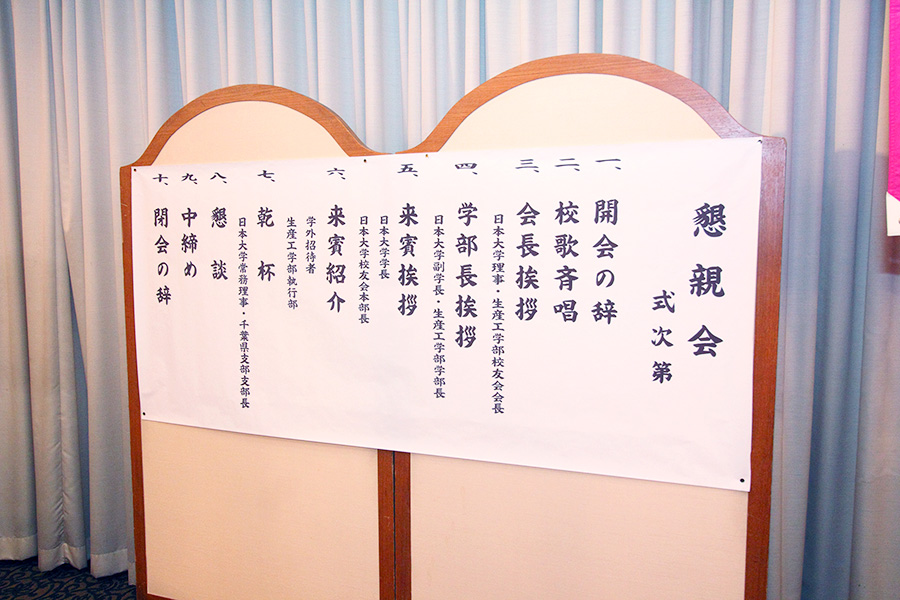 懇親会
式次第
一、開会の辞
二、校歌斉唱
三、会長挨拶
日本大学理事・生産工学部校友会会長
四、学部長挨拶
日本大学副学長・生産工学部学部長
五、来賓挨拶
日本大学学長
日本大学校友会本部長
六、来賓紹介
学外招待者
生産工学部執行部
七、乾杯
日本大学常務理事・千葉県支部支部長
八、懇談
九、中締め
十、閉会の辞